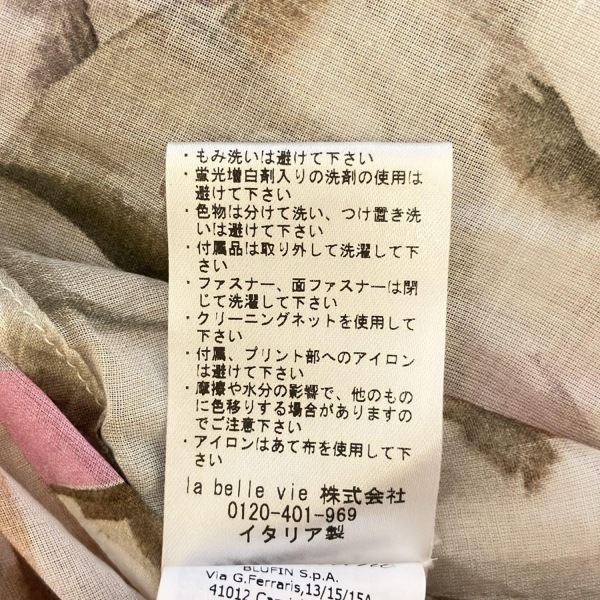 ・もみ洗いは避けて下さい
・蛍光増白剤入りの洗剤の使用は
避けて下さい
・色物は分けて洗い、つけ置き洗
いは避けて下さい
・付属品は取り外して洗濯して下
さい
・ファスナー、面ファスナーは閉
じて洗濯して下さい
・クリーニングネットを使用して
下さい
・付属、プリント部へのアイロン
は避けて下さい
・摩擦や水分の影響で、他のもの
に色移りする場合がありますの
でご注意下さい
・アイロンはあて布を使用して下
さい
la belle vie 株式会社
0120-401-969
イタリア製
BLUFIN S.p.A.
Via G.Ferraris,13/15/15A
41012